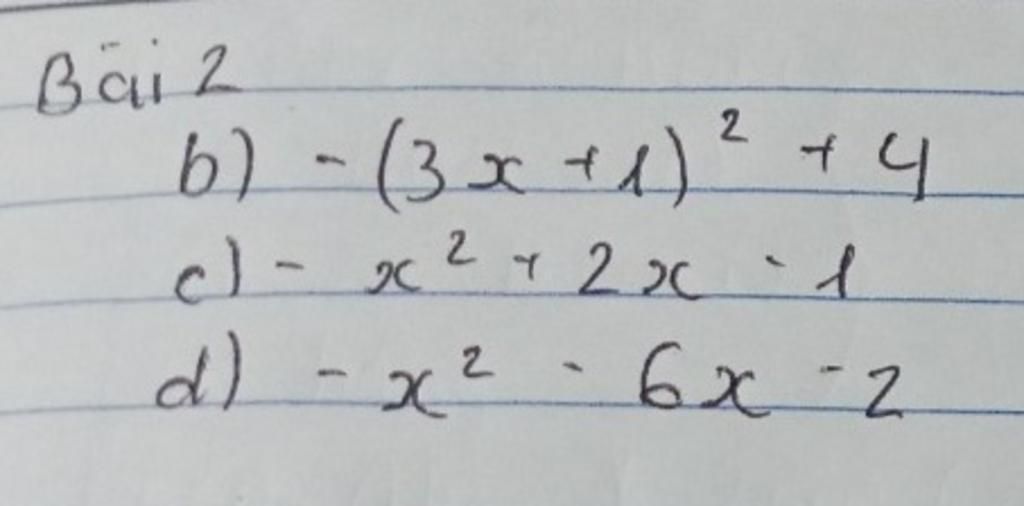 Bài 2
b) - (3x + 1)² + 4
c) - x² + 2x - 1
d) - x² - 6x - 2